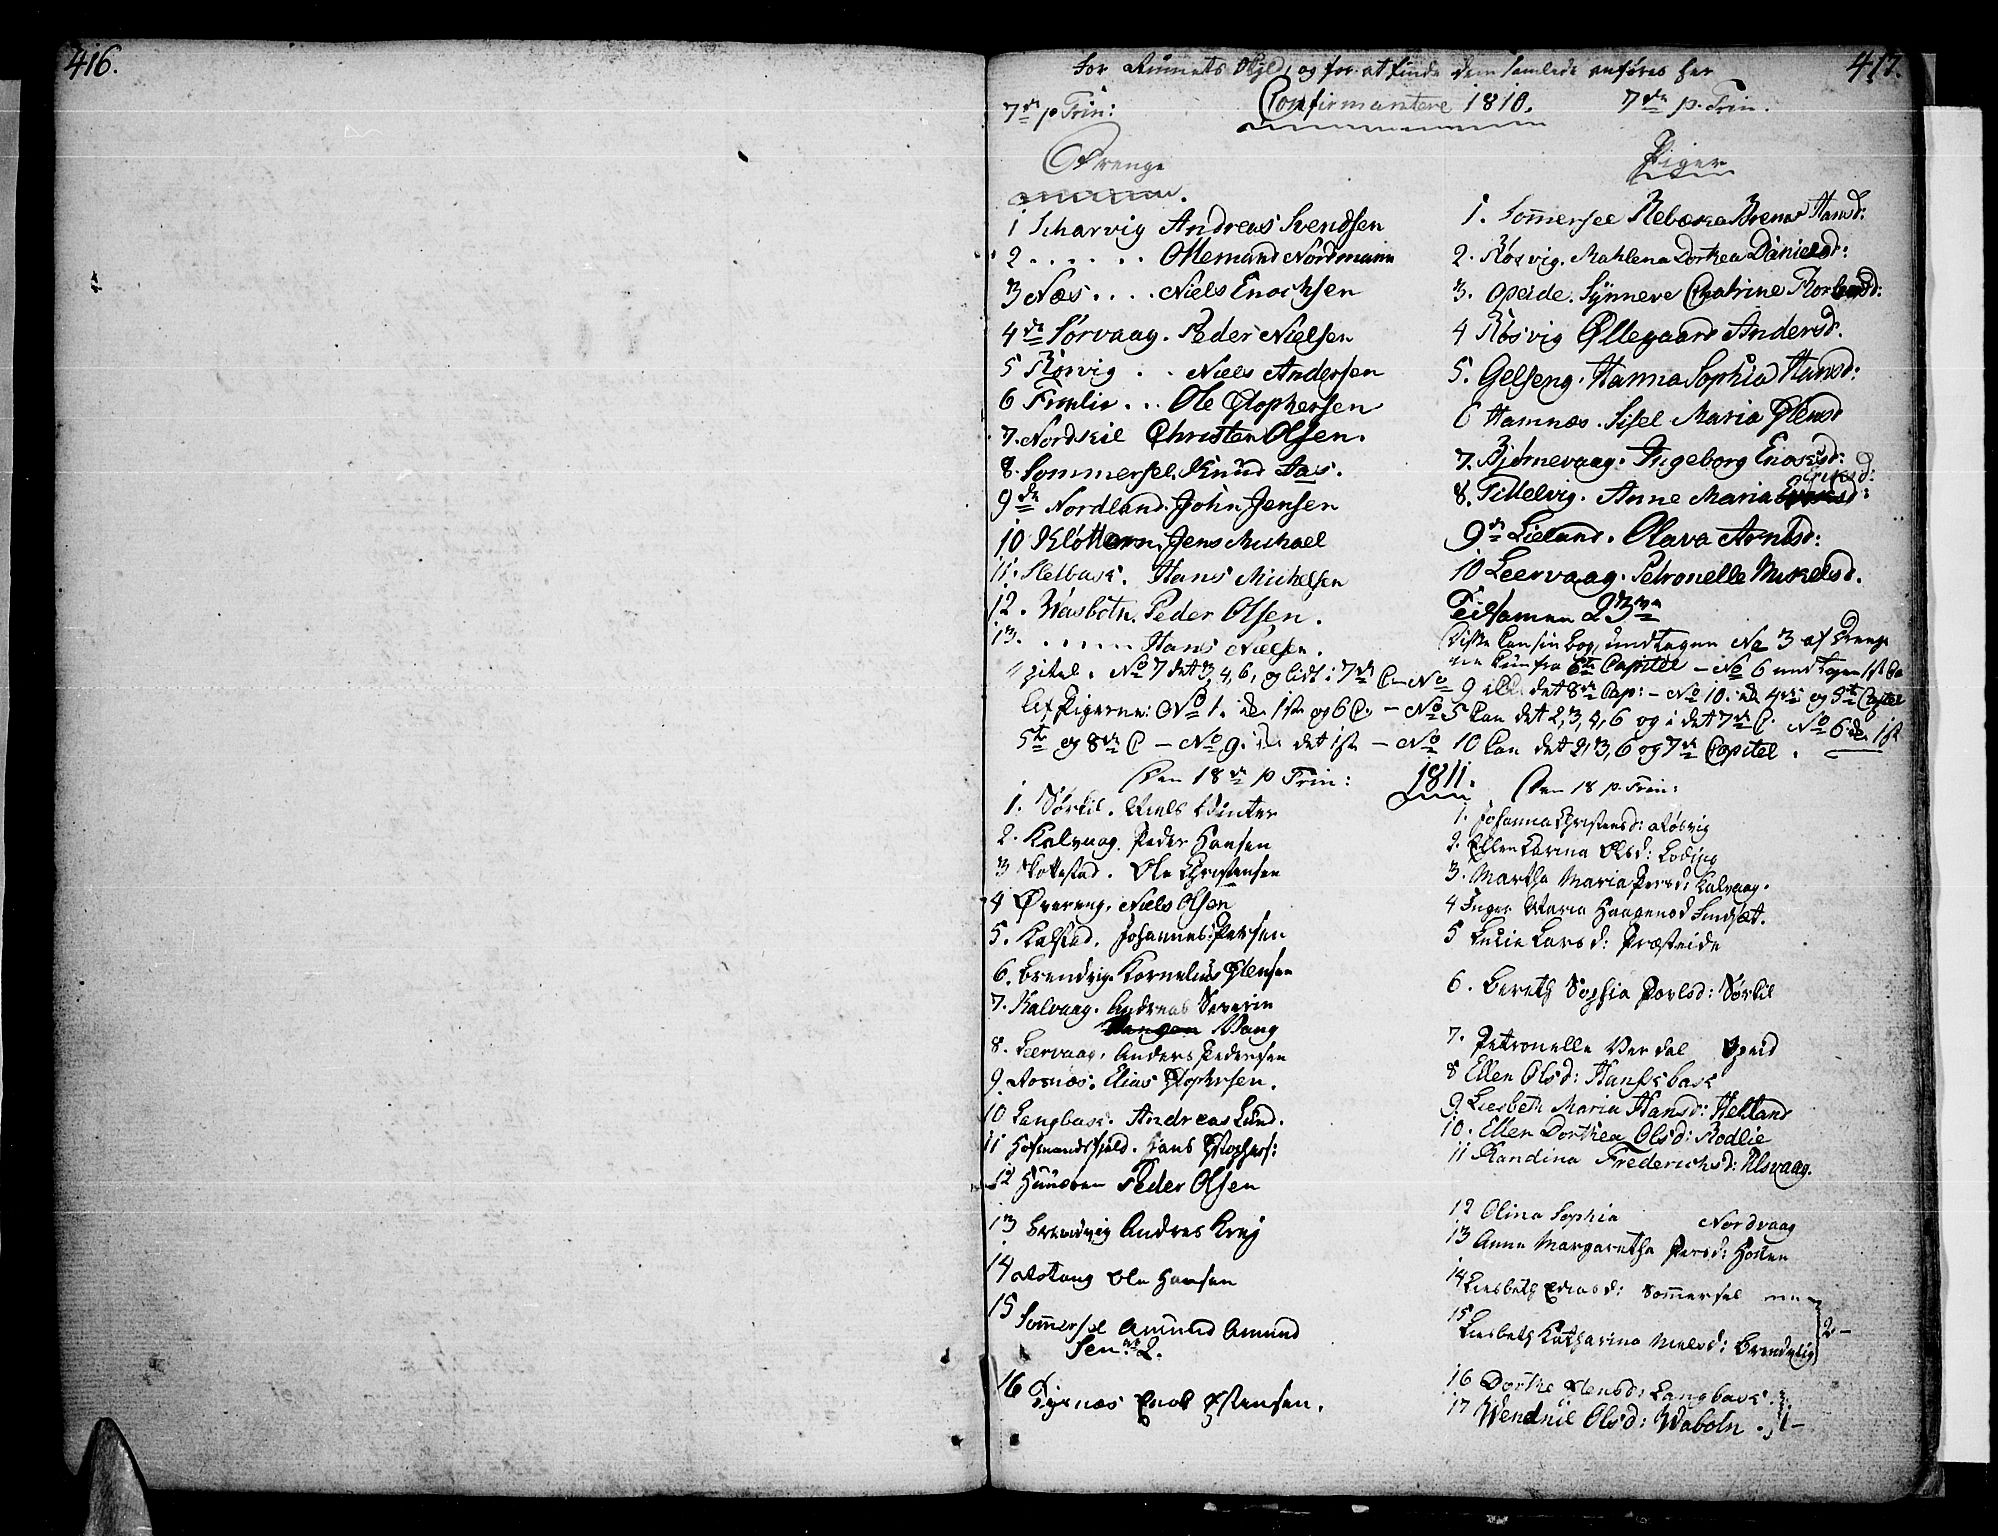 416.
417.
for Rumets Skyld, og for at finde dem samlede anføres her
7de p Trin: Confirmantere 1810. 7de p. Trin.
Drenge
1 Scharvig Andreas Svendsen
2 . . . . . . Ottemand Nordmann
3 Næs . . . . Niels Enochsen
4de Sørvaag. Peder Nielsen
5 Korvig . . Niels Andersen
6 . . Ole Stophersen
7. Nordskil Christen Olsen.
8. Sommersel. Knud Aas.
9de Nordland. John Jensen
10 Kløttern. Jens Michael
11. Stelbask. Hans Michelsen
12. Wasbotn. Peder Olsen.
13. . . . . . Hans Nielsen.
Piger
1. Som̄ersel Rebecka Brenas Hansd:
2. Røsvig. Mahlena Dorthea Danielsd:
3. Opeide. Synneve Cathrine Thorbersd:
4 Røsvig Øllegaard Andersd.
5. Gelseng. Hanna Sophia Hansd:
6 Hamnæs. Sisel Maria Stensd
7. Bjørnevaag. Ingeborg Enochsd:
8. Tillelvig. Anne Maria Eriksd:
9de Lieland. Olava Arntsd:
10 Leervaag. Petronelle Mikelsd.
Til Samen 23
Disse Kan sin Bog, undtagen No 3 af Drenge
ne kun fra 6te Capitel - No 6 undtagen 1ste Ca
pitel. No 7 det 3, 4, 6, og lidt i 7de C No 9 det 8de Cap: - No 10. 4de og 5te Capitel
Af Pigerne: No 1. den 1ste og 6 C. - No 5 Kan det 2, 3, 4, 6 og i det 7de C. No 6 den 1st
5te og 8de C - No 9. det 1ste - No 10 Kan det 2, 3, 6 og 7de Capitel.
Den 18de p Trin: 1811. Den 18 p. Trin:
1. Sørkil. Niels Winter
2. Kalvaag. Peder Hansen
3 Skottestad. Ole Christensen
4 Øvereng. Niels Olsen
5. Kalstad. Johannes Persen
6. Brendvig. Kornelius Stensen
7. Kalvaag. Andreas Severin
Vang
8. Leervaag. Anders Pedersen
9. Aornæs. Elias Stophersen.
10 Langbask. Andreas Lund.
11 Hofmandsfjeld. Hans Stophers:
12 Peder Olsen
13 Brendvig Andres Krej
14 Ole Hansen
15 Som̄ersel Amund Amund
Sen. 2.
16 Tyrnæs Enok Østensen.
1. Johanna Christensd: Røsvig
2. Ellen Karina Olsd: Loding
3. Martha Maria Persd: Kalvaag.
4 Inger Maria Haagensd Sindsæt.
5 Lucie Larsd: Præsteide
6. Bereth Sophia Povlsd: Sørkil
7. Petronelle Verdal Opeid
8 Ellen Olsd: Hansbask
9. Liesbeth Maria Hansd: Helland
10. Ellen Dorthea Olsd: Rodlie
11 Randina Frederichsd: Ulsvaag.
12 Olina Sophia Nordvaag
13 Anne Margaretha Persd: Hollen
14 Liesbeth Eliasd: Som̄ersel
15 Liesbeth Katharina Nielsd: Brendvig } 2 -
16 Dorthe Stensd: Langbask
17 Wendnil Olsd: Wabotn. 1 -